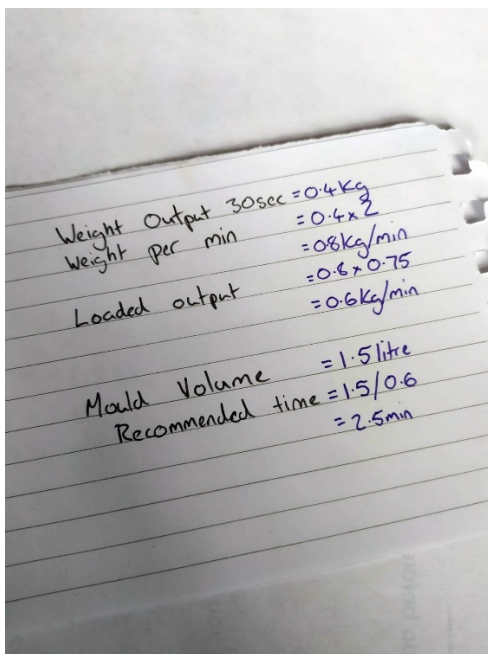 Weight Output 30sec = 0.4Kg
Weight per min = 0.4 x 2
= 0.8Kg/min
Loaded output = 0.8 x 0.75
= 0.6Kg/min
Mould Volume = 1.5 litre
Recommended time = 1.5/0.6
= 2.5min